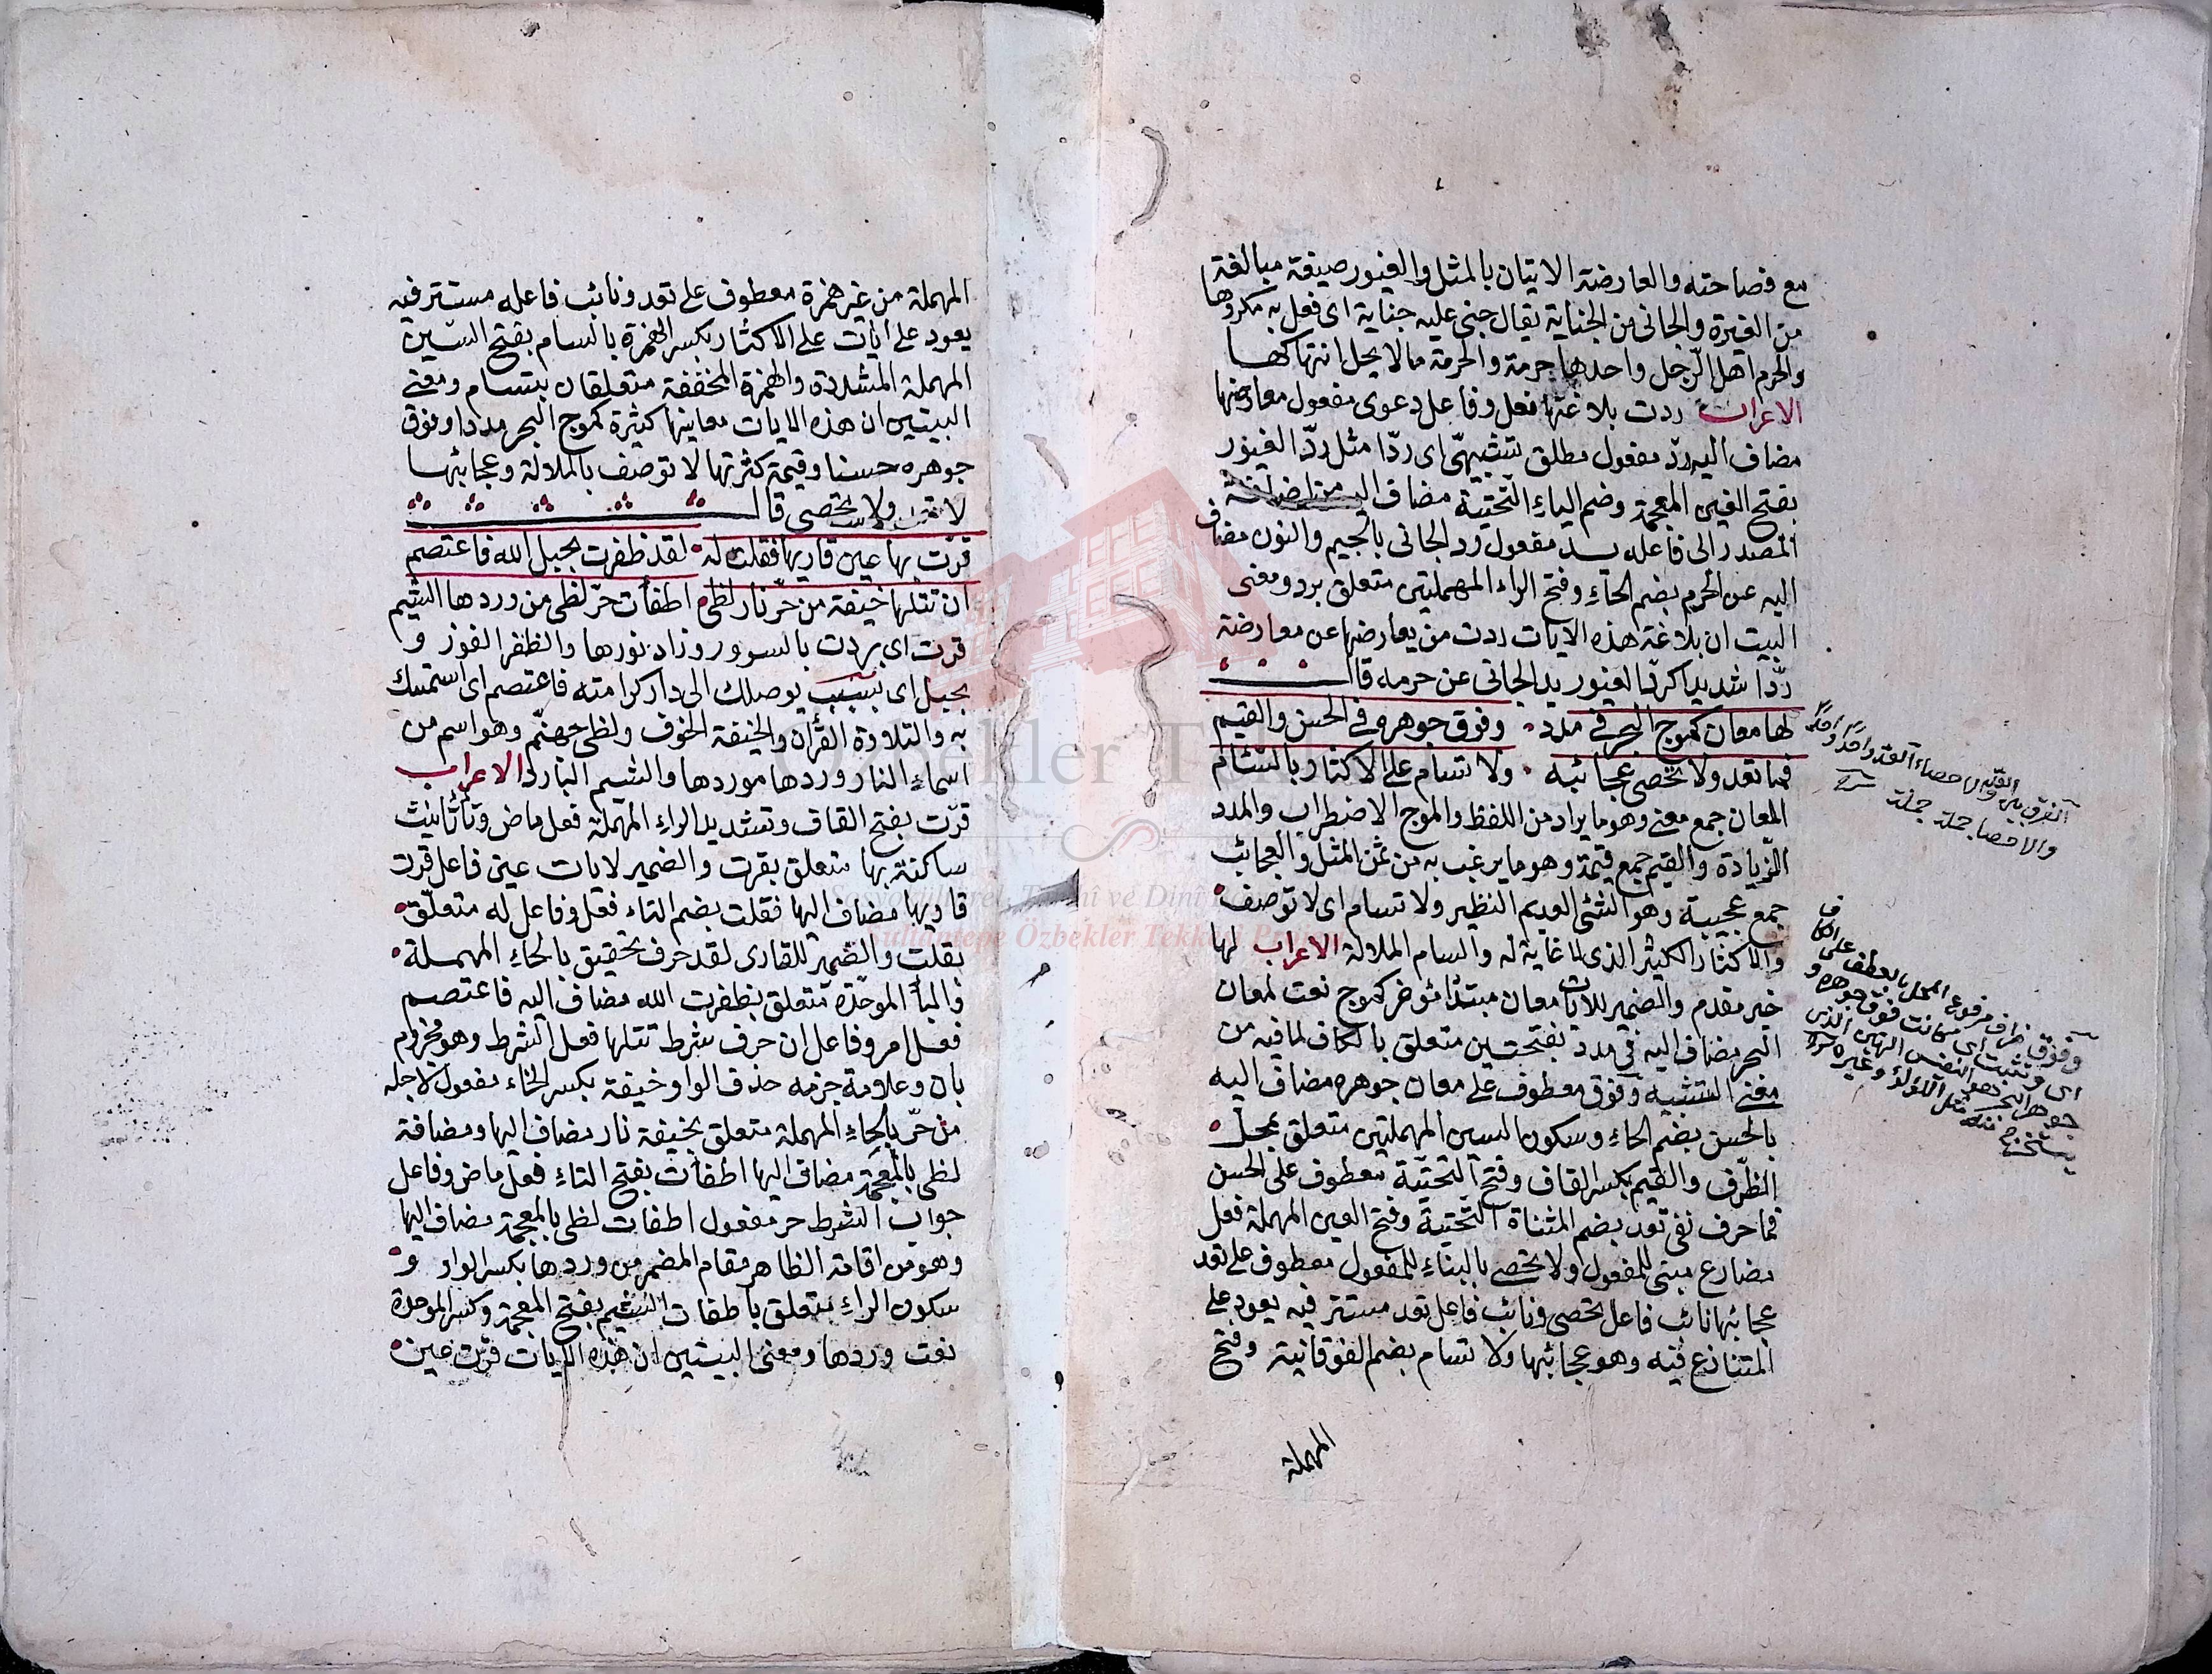 مع فصاحته والمعارضة الاتيان بالمثل والغيور صيغة مبالغة
من الغيرة والجانى من الجناية يقال جنى عليه جناية اى فعل به مكروها
والحرم اهل الرّجل واحدها حرمة والحرمة ما لا يحل انتهاكها
الاعراب ردت بلاغتها فعل وفاعل دعوى مفعول معارضها
مضاف اليه ردّ مفعول مطلق تشبيهىّ اى ردّا مثل ردّ الغيور
بفتح الغين المعجمة وضم الياء التّحتيّة مضاف اليه من اضافة
المصدر الى فاعله يد مفعول رد الجانى بالجيم والنون مضاف
اليه عن الحرم بضم الحاء وفتح الراء المهملتين متعلق برد ومعنى
البيت ان بلاغة هذه الايات ردت من يعارضها عن معارضة
ردّا شديدا كردّ الغيور يد الجانى عن حرمه قال
لها معان كموج البحر فى مدد وفوق جوهره فى الحسن والقيم
فما تعد ولا تحصى عجائبه ولا تسام على الاكثار بالسّئام
المعان جمع معنى وهو ما يراد من اللفظ والموج الاضطراب والمدد
الزّيادة والقيم جمع قيمة وهو ما يرغب به من ثمن المثل والعجائب
جمع عجيبة وهو الشئ العديم النظير ولا تسام اى لا توصف
والاكثار الكثير الذى لا غاية له والسام الملالة الاعراب لها
خبر مقدم والضمير للايات معان مبتدأ مؤخر كموج نعت لمعان
البحر مضاف اليه فى مدد بفتحتين متعلق بالكاف لما فيه من
معنى التشبيه وفوق معطوف على معان جوهره مضاف اليه
بالحسن بضم الحاء وسكون السين المهملتين متعلق بمحلّ
الظّرف والقيم بكسر القاف وفتح التّحتيّة معطوف على الحسن
فما حرف نفى تعد بضم المثناة التّحتيّة وفتح العين المهملة فعل
مضارع مبنى للمفعول ولا تحصى بالبناء للمفعول معطوف على تعد
عجائبها نائب فاعل تحصى ونائب فاعل تعد مستتر فيه يعود على
المتنازع فيه وهو عجائبها ولا تسام بضم الفوقانية وفتح
المهملة
والاحصا جملة جملة
المهملة من غير همزة معطوف على تعد ونائب فاعله مستتر فيه
يعود على ايات على الاكثار بكسر الهمزة بالسام بفتح السّين
المهملة المشدّدة والهمزة المخففة متعلقان بتسام ومعنى
البيتين ان هذه الايات معاينها كثيرة كموج البحر مددا وفوق
جوهره حسنا وقيمة كثرتها لا توصف بالملالة وعجائبها
ولا تحصى قال
قرّت بها عين قاريها فقلت له لقد ظفرت بحبل الله فاعتصم
ان تتلها خيفة من حرّ نار لظى اطفأت حرّ لظى من وردها الشيم
قرّت اى بردت بالسرور وزاد نورها والظفر الفوز و
بحبل اى بسبب يوصلك الى دار كرامته فاعتصم اى استمسك
به والتلاوة القرأن والخيفة الخوف ولظى جهنّم وهو اسم من
اسماء النار وردها موردها والشيم البارد الاعراب
قرّت بفتح القاف وتشديد الراء المهملة فعل ماض وتاء تانيث
ساكنة بها متعلق بقرت والضمير لايات عين فاعل قرت
قاريها مضاف اليها فقلت بضم التاء فعل وفاعل له متعلّق
بقلت والضمير للقارى لقد حرف تحقيق بالحاء المهملة
والبأ الموحّدة متعلق بظفرت الله مضاف اليه فاعتصم
فعل امر وفاعل ان حرف شرط تتلها فعل الشرط وهو مجزوم
بان وعلامة جزمه حذف الواو خيفة بكسر الخاء مفعول لاجله
من حرّ بالحاء المهملة متعلق بخيفة نار مضاف اليها ومضافة
لظى بالمعجمة مضاف اليها اطفأت بفتح التاء فعل ماض وفاعل
جواب الشرط حر مفعول اطفات لظى بالمعجمة مضاف اليها
وهو من اقامة الظاهر مقام المضمر من وردها بكسر الواو و
سكون الراء متعلق باطفات الشيم بفتح المعجمة وكسر الموحدة
نعت وردها ومعنى البيتين ان هذه الايات قرّت عين